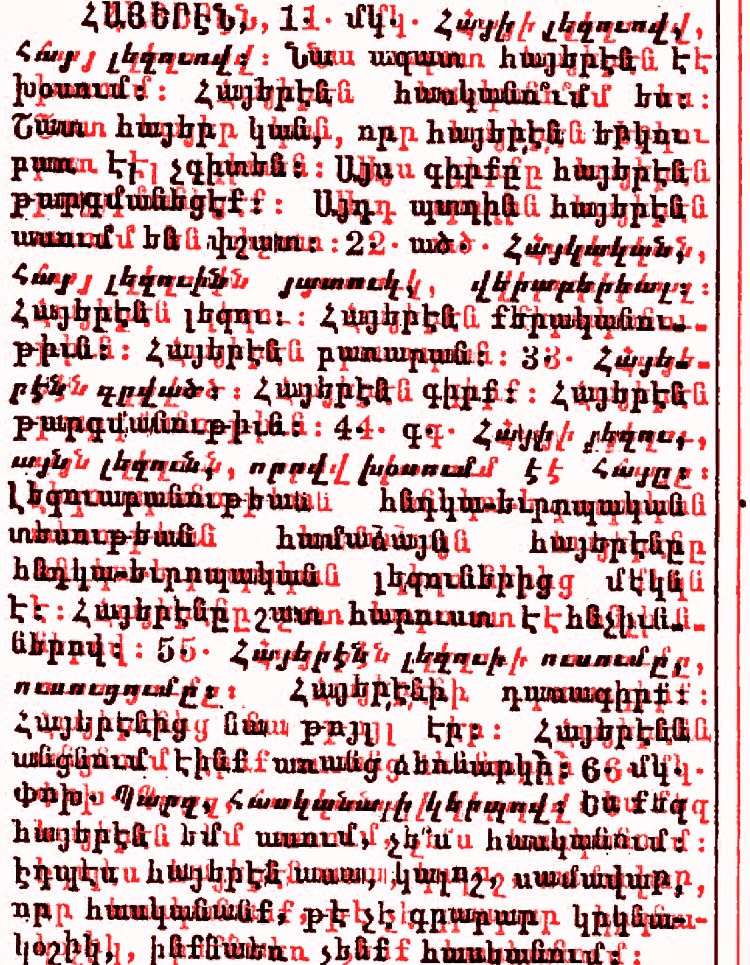 ՀԱՅԵՐԷՆ, 1. մկ. Հայի լեզուով,
Հայ լեզուով: Նա ազատ հայերէն է
խօսում: Հայերէն հասկանո՞ւմ ես:
Շատ հայեր կան, որ հայերէն երկու
բառ էլ չգիտեն: Այս գիրքը հայերէն
թարգմանեցէք: Այդ պտղին հայերէն
ասում են փշատ: 2. ած. Հայկական,
Հայ լեզուին յատուկ, վերաբերեալ:
Հայերէն լեզու: Հայերէն քերականու-
թիւն: Հայերէն բառարան: 3. Հայե-
րէն գրված: Հայերէն գիրք: Հայերէն
թարգմանութիւն: 4. գ. Հայի լեզու,
այն լեզուն, որով խօսում է Հայը:
Լեզուաբանութեան հնդկա-եւրոպական
տեսութեան համաձայն հայերէնը
հնդկա-եւրոպական լեզուներից մէկն
է: Հայերէնը շատ հարուստ է հնչիւն-
ներով: 5. Հայերէն լեզուի ուսումը,
ուսուցումը: Հայերէնի դասագիրք:
Հայերէնից նա թոյլ էր: Հայերէնն
անցնում էինք առանց ձեռնարկի: 6. մկ.
փոխ. Պարզ, Հասկանալի կերպով: Ես քեզ
հայերէն եմ ասում, չե՞ս հասկանում:
Էդպէս հայերէն ասա, կալոշ, սամավար,
որ հասկանանք, թէ չէ գրաբար կրկնա-
կօշիկ, ինքնաեռ չենք հասկանում: